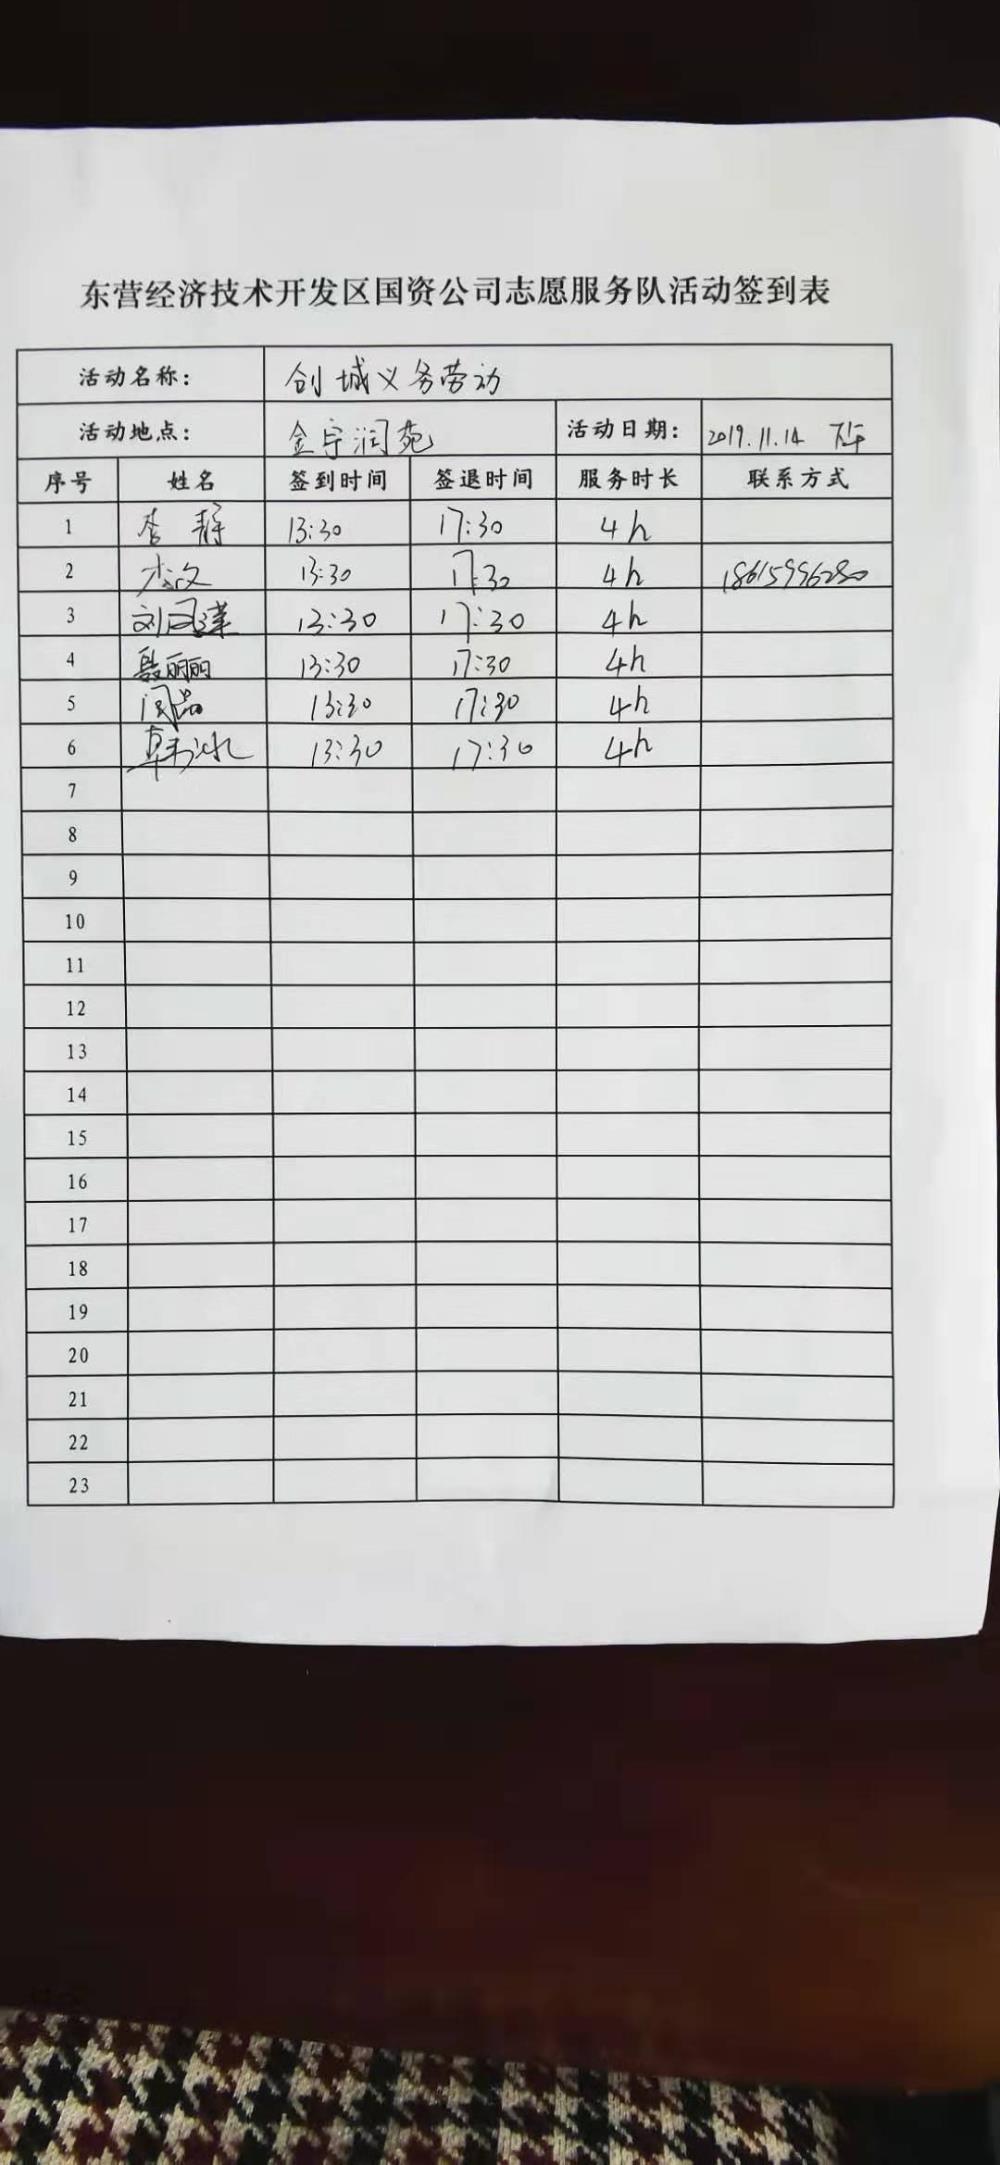 东营经济技术开发区国资公司志愿服务队活动签到表
活动名称: 创城义务劳动
活动地点: 金宇润苑 活动日期: 2019.11.14 下午
序号 姓名 签到时间 签退时间 服务时长 联系方式
1 李静 13:30 17:30 4h
2 13:30 17:30 4h 18615996280
3 刘 13:30 17:30 4h
4 殷丽丽 13:30 17:30 4h
5 闫磊 13:30 17:30 4h
6 韩冰 13:30 17:30 4h
7
8
9
10
11
12
13
14
15
16
17
18
19
20
21
22
23